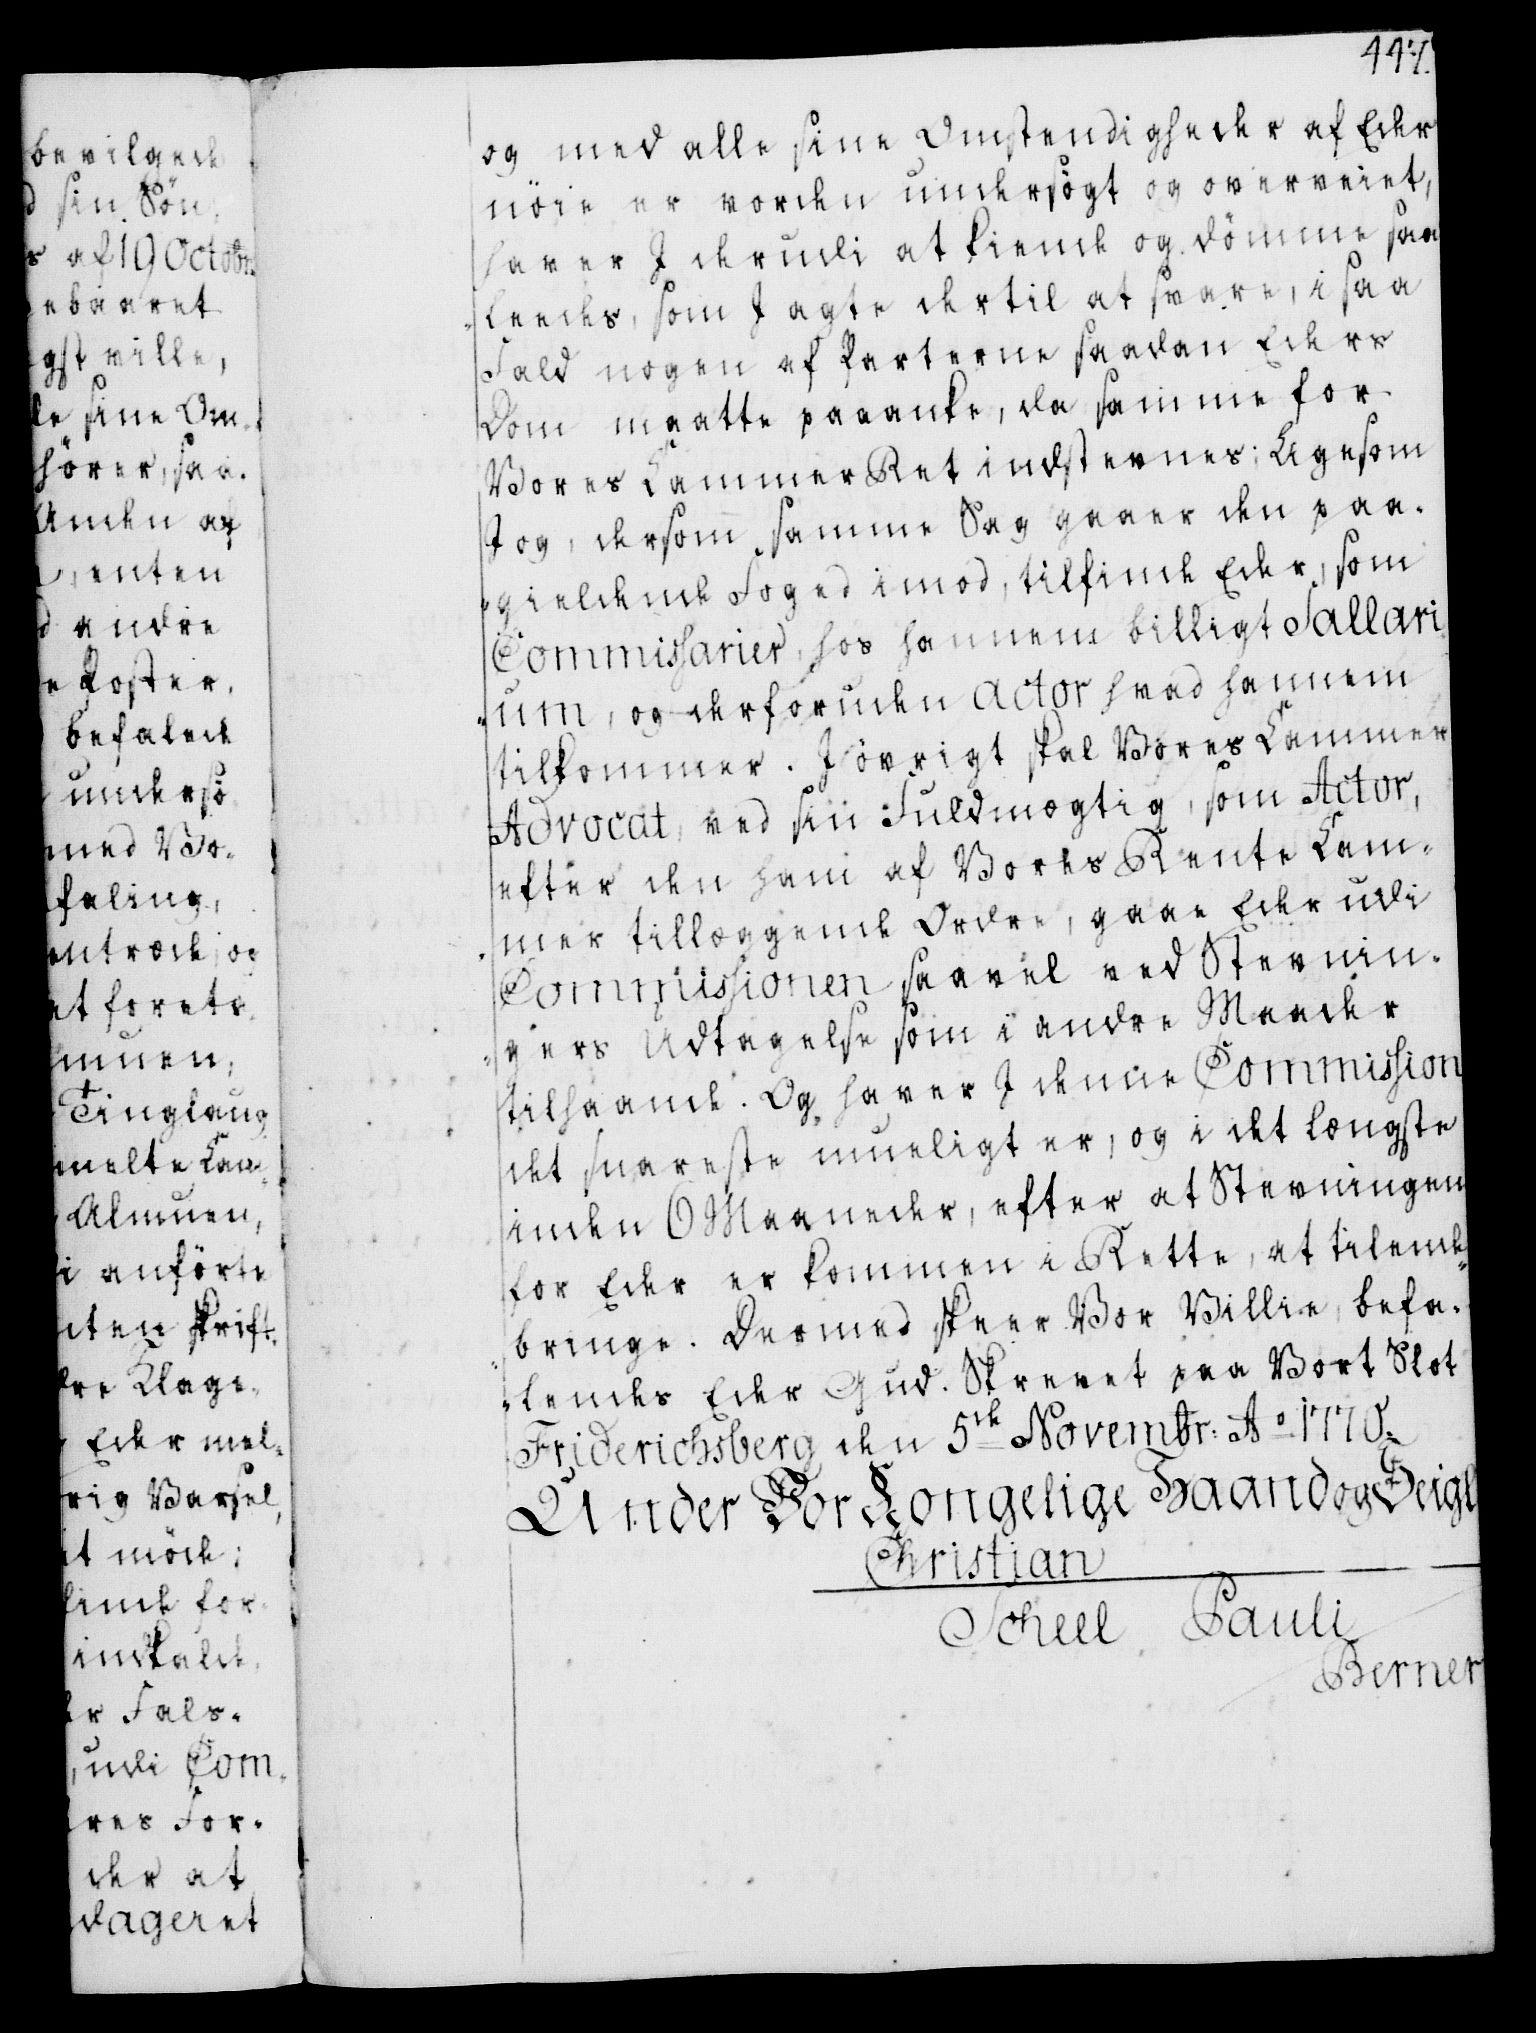 447.
bevilgede
d sin Sön,
s af 19 Octobr:
ebaaret
gst ville,
le sine Om-
hörer, saa-
Anden af
, enten
d andre
e Poster,
befalede
undersö
med Vo-
faling,
ntræde, og
et forets
muen,
Tinglaug
melte Can-
Almuen,
i anförte
nten skrift-
dre Klage-
Eder mel-
rig Varsel,
it möde;
finde for-
indkalde,
er Fals-
, udi Com-
res For-
der at
dageret
og med alle sine Omstendigheder af Eder
nöie er vorden undersögt og overveiet,
haver I derudi at kiende og dömme saa
leedes, som I agte dertil at svare, i saa
Fald nogen af Parterne saadan Eders
Dom maatte paaanke, da samme for
Vores CammerRet indstevnes; Ligesom
I og, dersom samme Sag gaaer den paa-
gieldende Foged imod, tilfinde Eder, som
Commissarier, hos hannem billigt Sallari
um, og derforuden Actor hvad hannem
tilkommer. I övrigt skal Vores Cammer
Advocat, ved sin Fuldmægtig, som Actor,
efter den ham af Vores Rente Cam-
mer tillæggende Ordre, gaae Eder udi
Commissionen saavel ved Stevnin-
gers Udtagelse som i andre Maader
tilhaande. Og haver I denne Commission
det snareste mueligt er, og i det længste
inden 6 Maaneder, efter at Stevningen
for Eder er kommen i Rette, at tilende
bringe. Dermed skeer Vor Villie, befa-
lendes Eder Gud. Skrevet paa Vort Slot
Friderichsberg den 5de Novembr: Ao 1770.
Under Vor Kongelige Haand og Seigl
Christian
Scheel Pauli
Berner